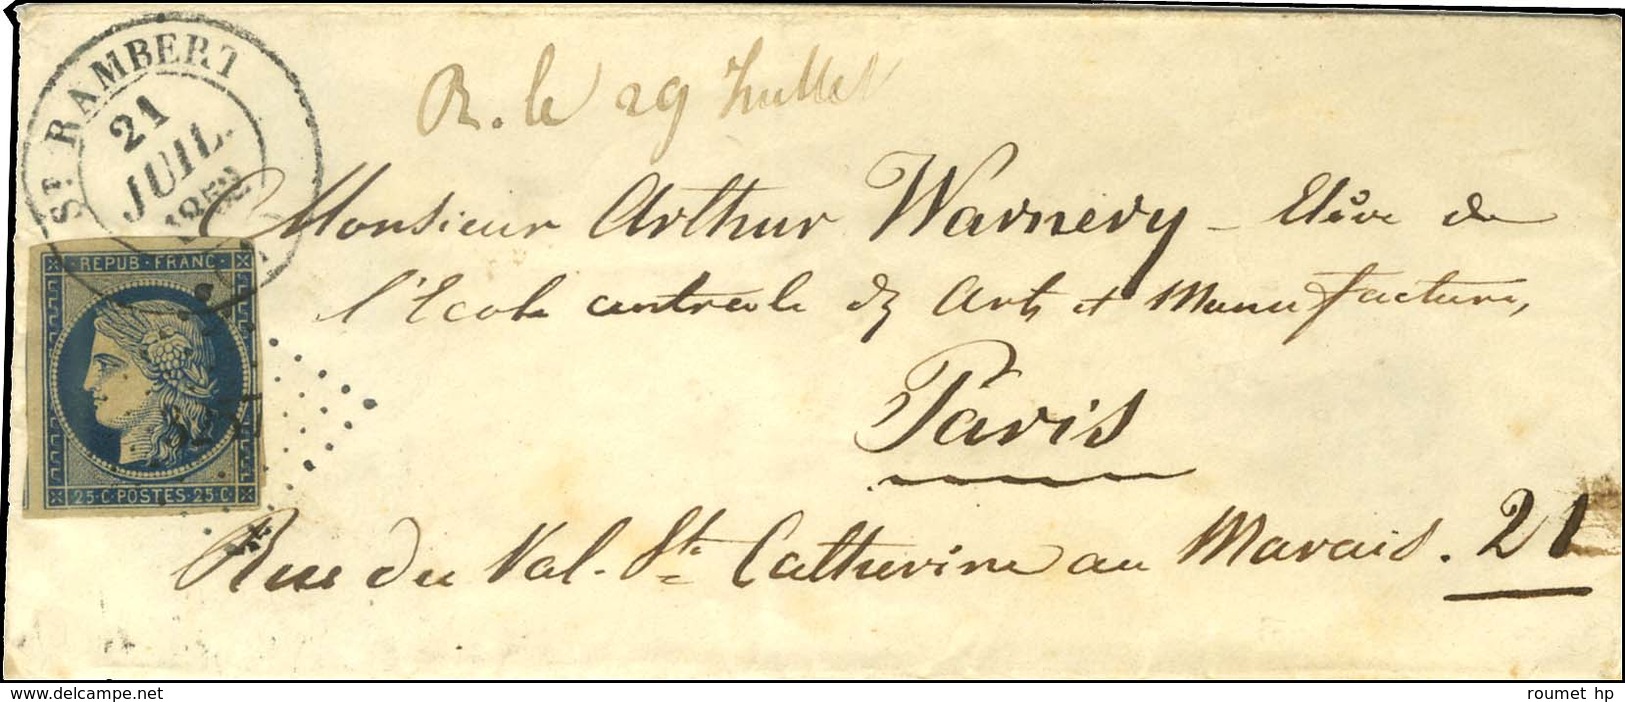 St RAMBERT
21
JUIL.
1852
R. le 29 Juillet
Monsieur Arthur Warnery - Elève de
l'Ecole centrale des Arts et Manufactures,
Paris
Rue du Val. Ste Catherine au Marais. 21
REPUB · FRANC
25 · C POSTES · 25 · C
www.delcampe.net
roumet hp